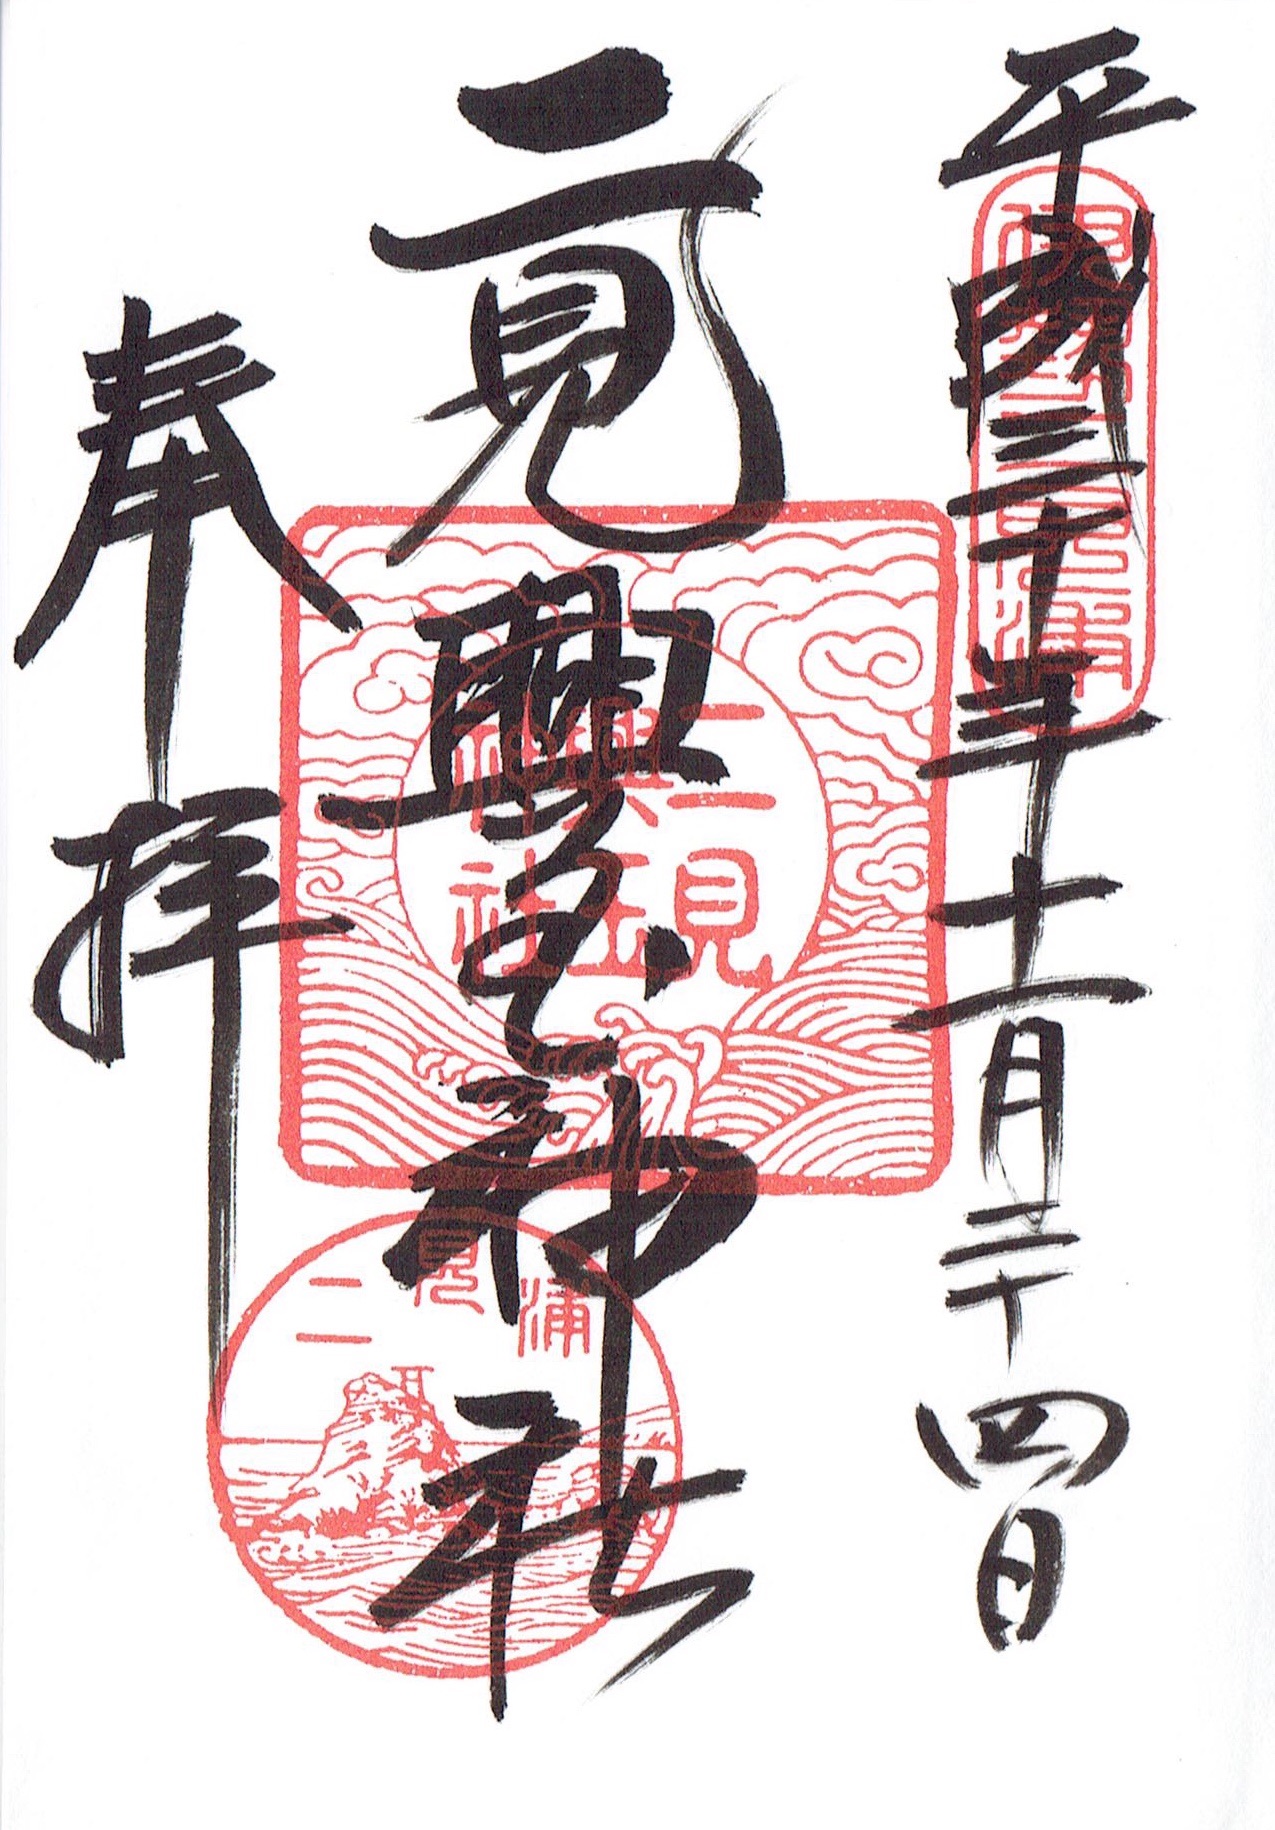 平成三十年十一月二十四日
伊勢二見浦
二見興玉神社
二見
興玉
神社
二見浦
奉拝